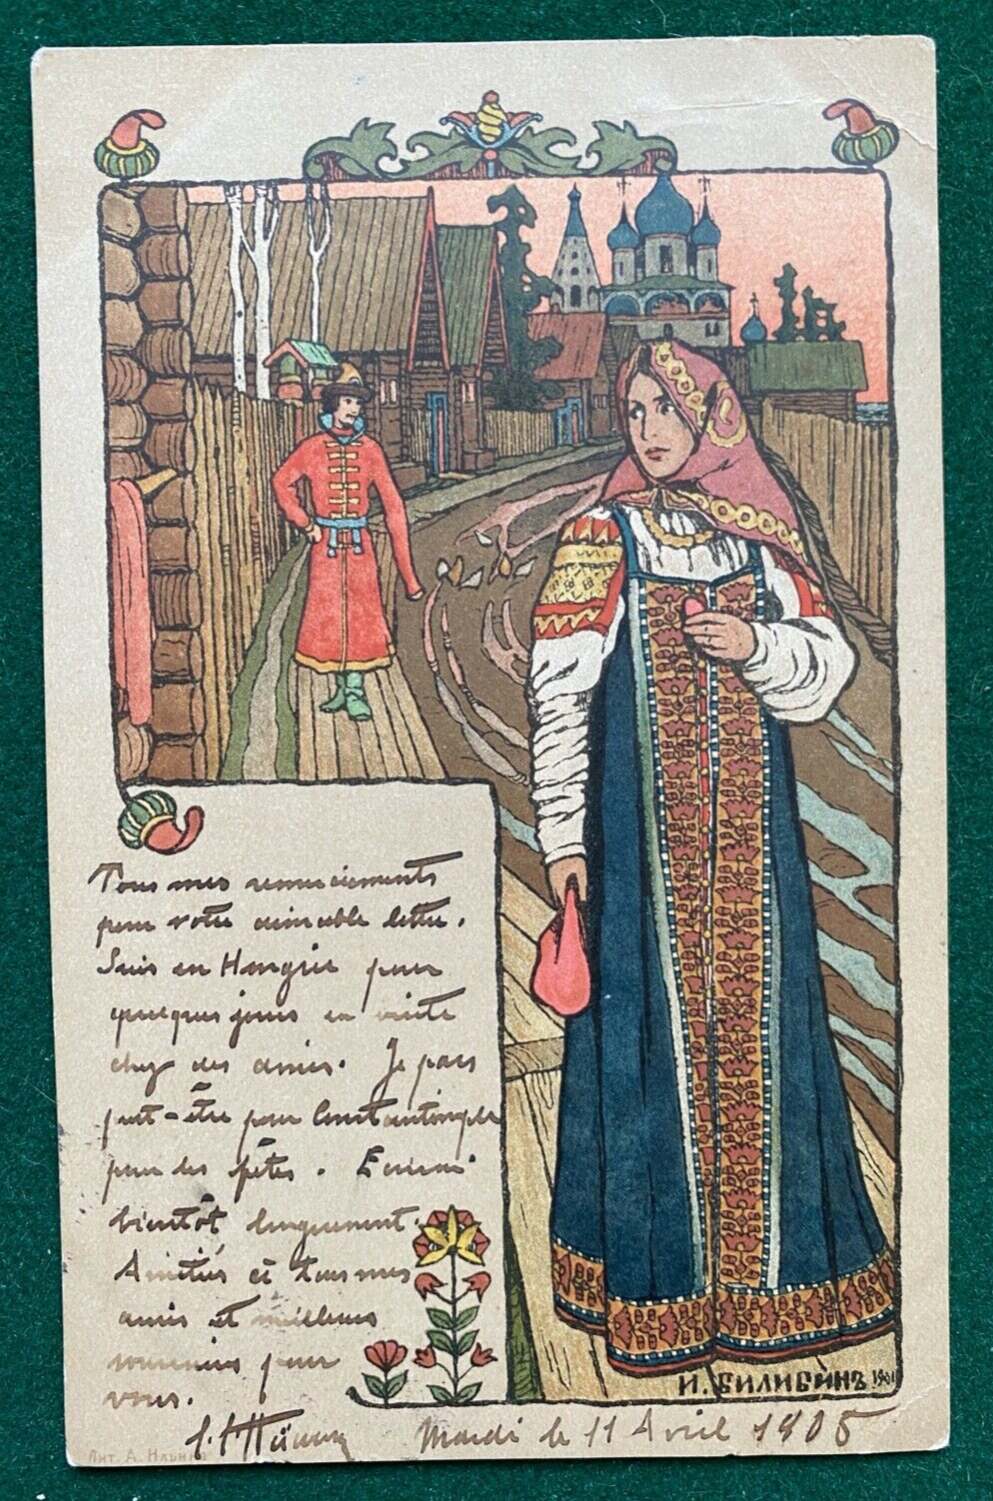 Tous mes remerciements
pour votre aimable lettre.
Suis en Hongrie pour
quelques jours en visite
chez des amis. Je pars
peut-être pour Constantinople
pour les fêtes. Ecrirai
bientôt longuement.
Amitiés à tous mes
amis et meilleurs
souvenirs pour
vous.
И. БИЛИБИНЪ 1901
Mardi le 11 Avril 1905
Лит. А. Ильина